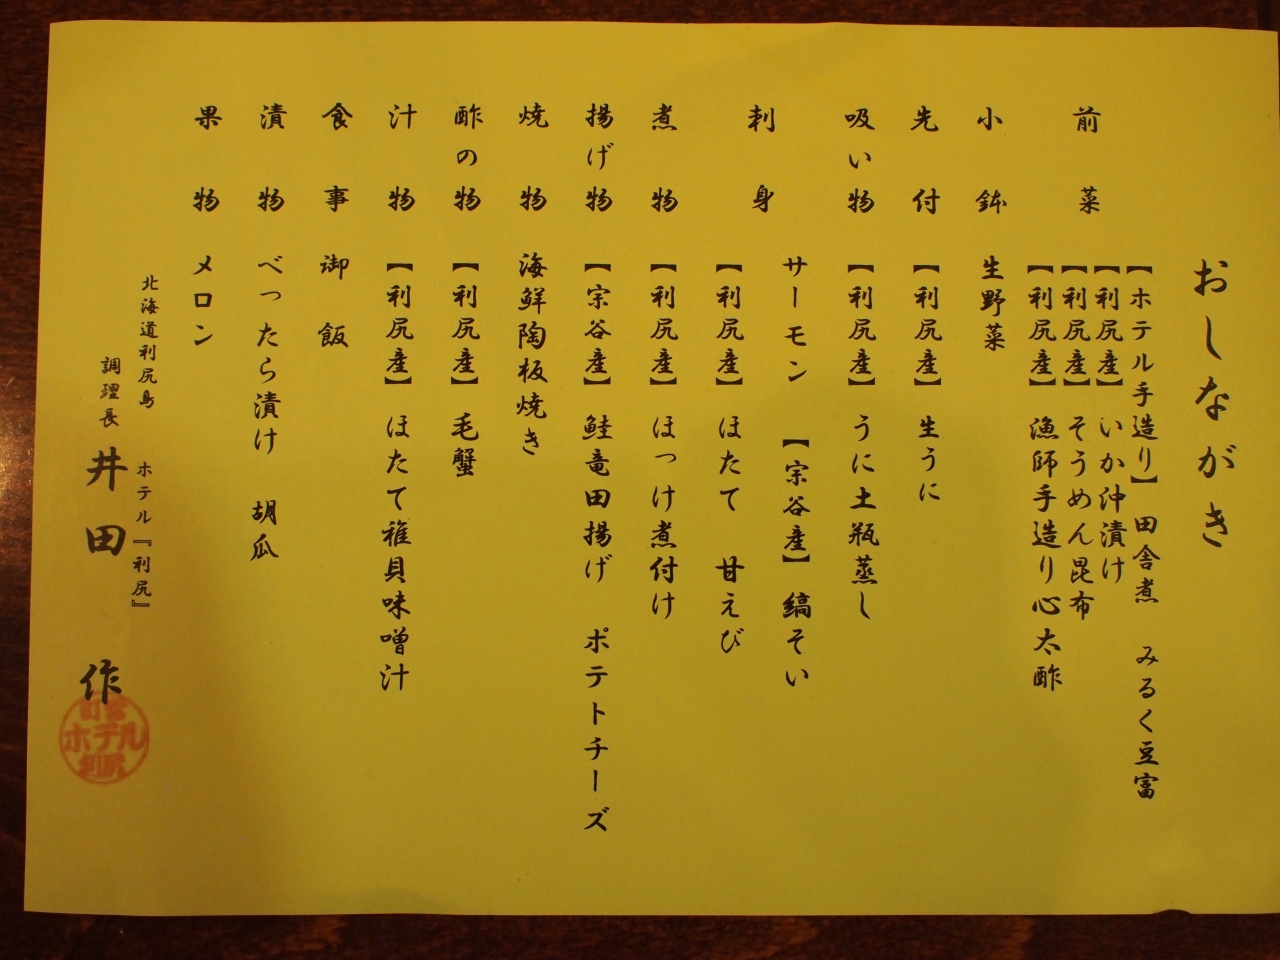 おしながき
前菜 【ホテル手造り】田舎煮 みるく豆富
【利尻産】いか沖漬け
【利尻産】そうめん昆布
【利尻産】漁師手造り心太酢
小鉢 生野菜
先付 【利尻産】生うに
吸い物 【利尻産】うに土瓶蒸し
刺身 サーモン 【宗谷産】縞そい
【利尻産】ほたて 甘えび
煮物 【利尻産】ほっけ煮付け
揚げ物 【宗谷産】鮭竜田揚げ ポテトチーズ
焼物 海鮮陶板焼き
酢の物 【利尻産】毛蟹
汁物 【利尻産】ほたて稚貝味噌汁
食事 御飯
漬物 べったら漬け 胡瓜
果物 メロン
北海道利尻島 ホテル『利尻』
調理長 井田 作
町営
ホテル
利尻